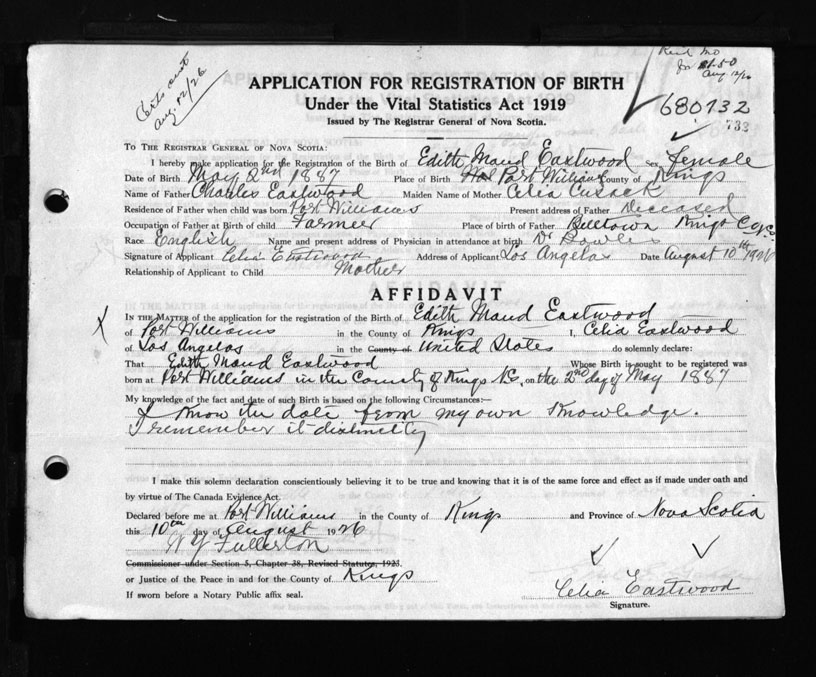 Certs sent
Aug. 12/26
for $1.50
Aug 12/26
680732
733
APPLICATION FOR REGISTRATION OF BIRTH
Under the Vital Statistics Act 1919
Issued by The Registrar General of Nova Scotia.
To The Registrar General of Nova Scotia:
I hereby make application for the Registration of the Birth of Edith Maud Eastwood Sex Female
Date of Birth May 2nd 1887 Place of Birth Port Williams County of Kings
Name of Father Charles Eastwood Maiden Name of Mother Celia Cusack
Residence of Father when child was born Port Williams Present address of Father Deceased
Occupation of Father at Birth of child Farmer Place of birth of Father Belltown Kings Co NS.
Race English Name and present address of Physician in attendance at birth Dr Bowles
Signature of Applicant Celia Eastwood Address of Applicant Los Angelos Date August 10th 1926
Relationship of Applicant to Child Mother
AFFIDAVIT
In the Matter of the application for the registration of the Birth of Edith Maud Eastwood
X
of Port Williams in the County of Kings I, Celia Eastwood
of Los Angelos in the County of United States do solemnly declare:
That Edith Maud Eastwood Whose Birth is sought to be registered was
born at Port Williams in the County of Kings NS, on the 2nd day of May 1887
My knowledge of the fact and date of such Birth is based on the following Circumstances:—
I know the date from my own knowledge.
I remember it distinctly
I make this solemn declaration conscientiously believing it to be true and knowing that it is of the same force and effect as if made under oath and
by virtue of The Canada Evidence Act.
Declared before me at Port Williams in the County of Kings and Province of Nova Scotia
this 10th day of August 1926
W Y Fullerton
Commissioner under Section 5, Chapter 38, Revised Statutes, 1923.
or Justice of the Peace in and for the County of Kings
If sworn before a Notary Public affix seal.
Celia Eastwood
Signature.